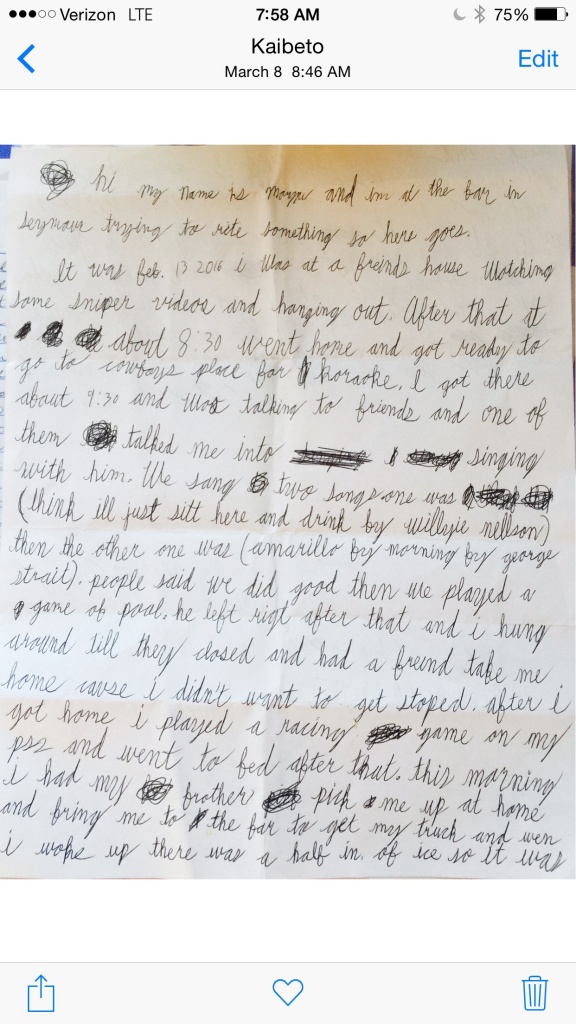 Verizon LTE 7:58 AM 75%
Kaibeto
March 8 8:46 AM
Edit
hi my name is and im at the bar in
seymour trying to rite something so hers goes.
It was feb. 13 2016 i was at a freinds house watching
some sniper videos and hanging out. After that at
about 8:30 went home and got ready to
go to cowboys place for koraoke. I got there
about 9:30 and was talking to friends and one of
them talked me into singing
with him. We sang two songs one was
(think ill just sitt here and drink by willyie nellson)
then the other one was (amarillo by morning by george
strait). people said we did good then we played a
game of pool. he left rigt after that and i hung
around till they closed and had a freind take me
home cause i didn't want to get stoped. after i
got home i played a racing game on my
ps2 and went to bed after that. this morning
i had my brother pick me up at home
and bring me to the bar to get my truck and wen
i woke up there was a half in. of ice so it was